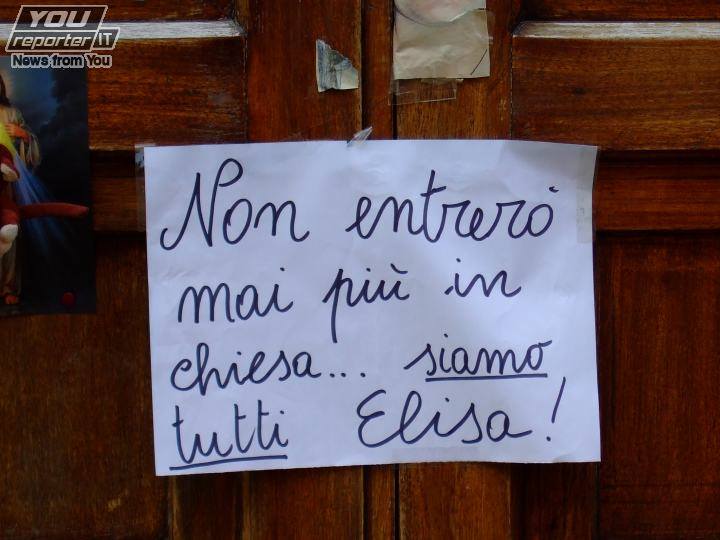 YOU
reporter IT
News from You
Non entrerò
mai più in
chiesa... siamo
tutti Elisa!